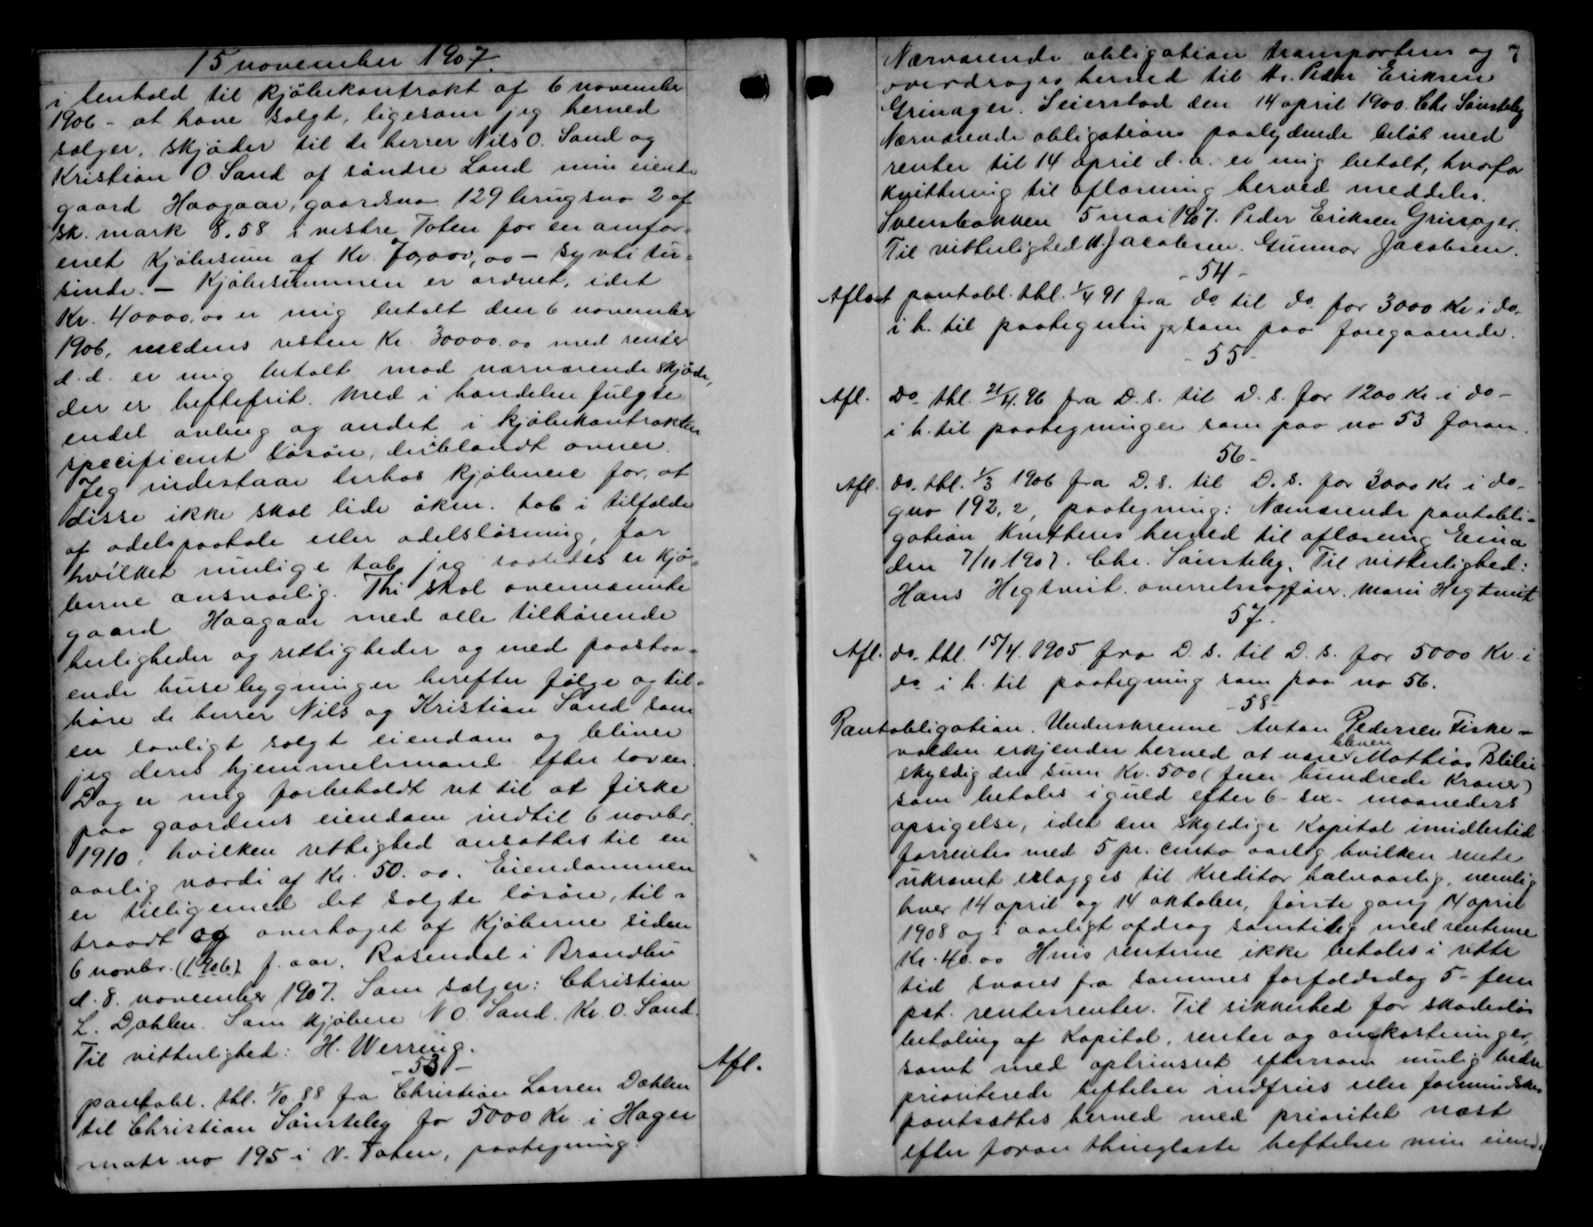 15 november 1907.
i henhold til kjøbekontrakt af 6 november
1906 - at have solgt, ligesom jeg herved
sælger, skjøder til de herrer Nils O. Sand og
Kristian O. Sand af søndre Land min eiende
gaard Haagaar, gaardsno 129 brugsno 2 af
sk. mark 8.58 i vestre Toten for en omfor-
enet Kjøbesum af Kr. 70,000,00 - sytti tu-
sinde. - Kjøbesummen er ordnet, idet
Kr. 40000.00 er mig betalt den 6 november
1906, medens resten Kr. 30000.00 med renter
d. d. er mig betalt mod nærværende skjøde,
der er heftefrit. Med i handelen fulgte
endel avling og andet i kjøbekontrakten
specificeret løsøre, deriblandt ovner.
Jeg indestaar derhos kjøberne for, at
disse ikke skal lide økon. tab i tilfælde
af odelspaatale eller odelsløsning, for
hvilket mulige tab jeg saaledes er kjø-
berne ansvarlig. Thi skal ovennævnte
gaard Haagaar med alle tilhørende
herligheder og rettigheder og med paastaa-
ende husebygninger herefter følge og til-
høre de herrer Nils og Kristian Sand som
en lovligt solgt eiendom og bliver
jeg deres hjemmelsmand efter loven.
Dog er mig forbeholdt ret til at fiske
paa gaardens eiendom indtil 6 novbr.
1910, hvilken rettighed ansættes til en
aarlig værdi af Kr. 50.00. Eiendommen
er tilligemed det solgte løsøre, til-
traadt og overtaget af Kjøberne siden
6 novbr. (1906) f. aar. Rosendal i Brandbu
d. 8. november 1907. Som sælger: Christian
L. Dæhlen. Som kjøbere N O. Sand. Kr. O. Sand.
Til vitterlighed: H. Werring.
- 53 -
Afl.
pantobl. thl. 1/10 88 fra Christian Larsen Dæhlen
til Christian Sønsteby for 5000 Kr i Hager
matr no 195 i V. Toten, paategning
Nærværende obligation transporteres og 7
overdrages herved til Hr. Peder Eriksen
Grinager. Seierstad den 14 april 1900. Chr Sønsteby
Nærværende obligations paalydende beløb med
renter til 14 april d. a. er mig betalt, hvorfor
kvittering til aflæsning herved meddeles.
Svensbakken 5 mai 1907. Peder Eriksen Grinager.
Til vitterlighed H. Jacobsen. Gunnar Jacobsen.
- 54 -
Aflæst pantobl. thl. 1/4 91 fra do til do for 3000 Kr i do.
i h. til paategninger som paa foregaaende.
- 55 -
Afl. do. thl. 21/4. 96 fra D. s. til D. s. for 1200 Kr i do -
i h. til paategninger som paa no 53 foran.
56 -
Afl. do. thl. 1/3 1906 fra D. s. til D. s. for 3000 Kr i do.
gno 192, 2, paategning: Nærværende pantobli-
gation kvitteres herved til aflæsning Eina
den 7/10 1907. Chr. Sønsteby. Til vitterlighed:
Hans Hegtveit. overretssagfører. Marie Hegtveit
57.
Afl. do. thl. 15/4. 1905 fra D. s. til D. s. for 5000 Kr. i
do i h. til paategning som paa no 56.
- 58 -
Pantobligation. Underskrevne Anton Pedersen Fiske-
volden erkjender herved at være bleven Mathias Blilie
skyldig den sum Kr. 500 (fem hundrede Kroner)
som betales i guld efter 6 - sex - maaneders
opsigelse, idet den skyldige Kapital imidlertid
forrentes med 5 pr. cento aarlig hvilken rente
ukrævet erlægges til Kreditor halvaarlig, nemlig
hver 14 april og 14 oktober, første gang 14 april
1908 og i aarligt afdrag samtidig med renterne
Kr. 40.00 Hvis renterne ikke betales i rette
tid svares fra sammes forfaldsdag 5 - fem
pct. rentesrenter. Til sikkerhed for skadesløs
betaling af Kapital, renter og omkostninger,
samt med oprinsret eftersom mulig bedre
prioriterede heftelser indfries eller formindskes
pantsættes herved med prioritet næst
efter foran thinglæste heftelser min eiende